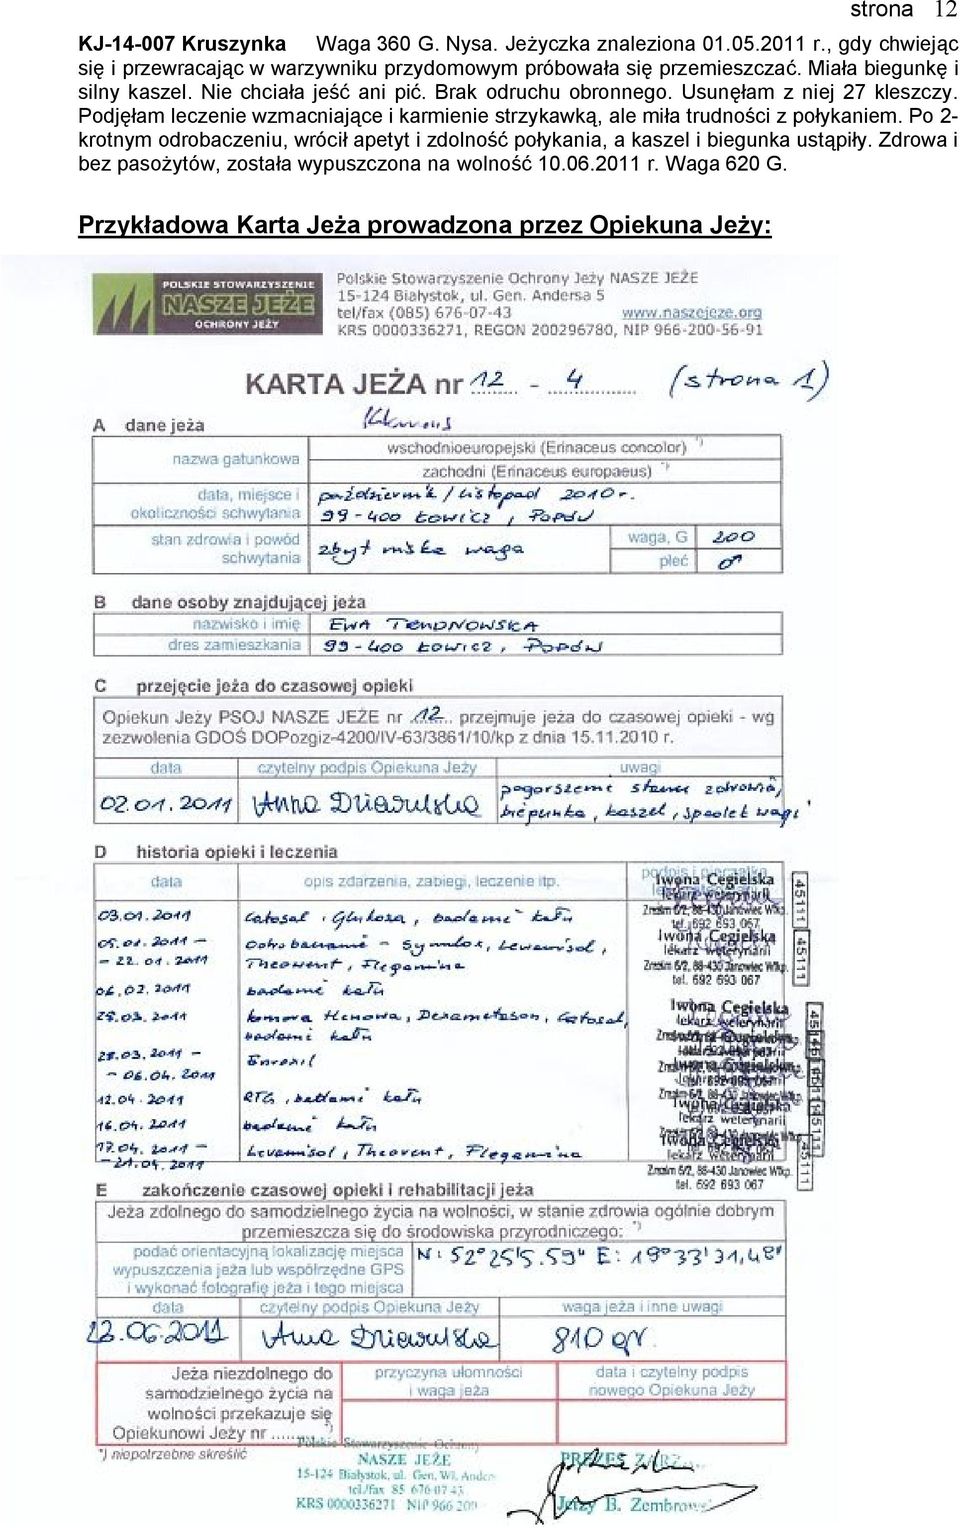 strona 12
KJ-14-007 Kruszynka Waga 360 G. Nysa. Jeżyczka znaleziona 01.05.2011 r., gdy chwiejąc
się i przewracając w warzywniku przydomowym próbowała się przemieszczać. Miała biegunkę i
silny kaszel. Nie chciała jeść ani pić. Brak odruchu obronnego. Usunęłam z niej 27 kleszczy.
Podjęłam leczenie wzmacniające i karmienie strzykawką, ale miła trudności z połykaniem. Po 2-
krotnym odrobaczeniu, wrócił apetyt i zdolność połykania, a kaszel i biegunka ustąpiły. Zdrowa i
bez pasożytów, została wypuszczona na wolność 10.06.2011 r. Waga 620 G.
Przykładowa Karta Jeża prowadzona przez Opiekuna Jeży:
POLSKIE STOWARZYSZENIE
NASZE JEŻE
OCHRONY JEŻY
Polskie Stowarzyszenie Ochrony Jeży NASZE JEŻE
15-124 Białystok, ul. Gen. Andersa 5
tel/fax (085) 676-07-43 www.naszejeze.org
KRS 0000336271, REGON 200296780, NIP 966-200-56-91
KARTA JEŻA nr 12 - 4 (strona 1)
A dane jeża
nazwa gatunkowa
wschodnioeuropejski (Erinaceus concolor) *)
zachodni (Erinaceus europaeus) *)
data, miejsce i okoliczności schwytania
październik / listopad 2010 r.
99-400 Łowicz, Popów
stan zdrowia i powód schwytania
zbyt niska waga
waga, G 200
płeć ♂
B dane osoby znajdującej jeża
nazwisko i imię EWA
dres zamieszkania 99-400 Łowicz, Popów
C przejęcie jeża do czasowej opieki
Opiekun Jeży PSOJ NASZE JEŻE nr 12 przejmuje jeża do czasowej opieki - wg
zezwolenia GDOŚ DOPozgiz-4200/IV-63/3861/10/kp z dnia 15.11.2010 r.
data czytelny podpis Opiekuna Jeży uwagi
02.01.2011 Anna
pogorszenie stanu zdrowia,
biegunka, kaszel, spadek wagi
D historia opieki i leczenia
data opis zdarzenia, zabiegi, leczenie itp.
03.01.2011 Catosal, Glukoza, badanie kału
05.01.2011 - Odrobaczanie - Levamisol,
- 22.01.2011 Theovent, Flegamina
06.02.2011 badanie kału
25.03.2011 komora tlenowa, Dexametason, Catosal,
badanie kału
28.03.2011 - Enroxil
- 06.04.2011
12.04.2011 RTG, badanie kału
16.04.2011 badanie kału
17.04.2011 - Levamisol, Theovent, Flegamina
- 21.04.2011
Iwona Cegielska
lekarz weterynarii
Żnin 6/2, 88-430 Janowiec Wlkp.
tel. 692 693 067
45111
E zakończenie czasowej opieki i rehabilitacji jeża
Jeża zdolnego do samodzielnego życia na wolności, w stanie zdrowia ogólnie dobrym
przemieszcza się do środowiska przyrodniczego: *)
podać orientacyjną lokalizację miejsca
wypuszczenia jeża lub współrzędne GPS
i wykonać fotografię jeża i tego miejsca
N: 52°25'5.59" E: 19°33'31,48"
data czytelny podpis Opiekuna Jeży waga jeża i inne uwagi
12.06.2011 Anna 810 gr.
Jeża niezdolnego do
samodzielnego życia na
wolności przekazuje się
Opiekunowi Jeży nr ......... *)
przyczyna ułomności
i waga jeża
data i czytelny podpis
nowego Opiekuna Jeży
*) niepotrzebne skreślić
Polskie Stowarzyszenie Ochrony
NASZE JEŻE
15-124 Białystok, ul. Gen. Wł. Anders
tel./fax 85 676 07 43
KRS 0000336271 NIP 966 200
PREZES
Jerzy B. Zembrowski